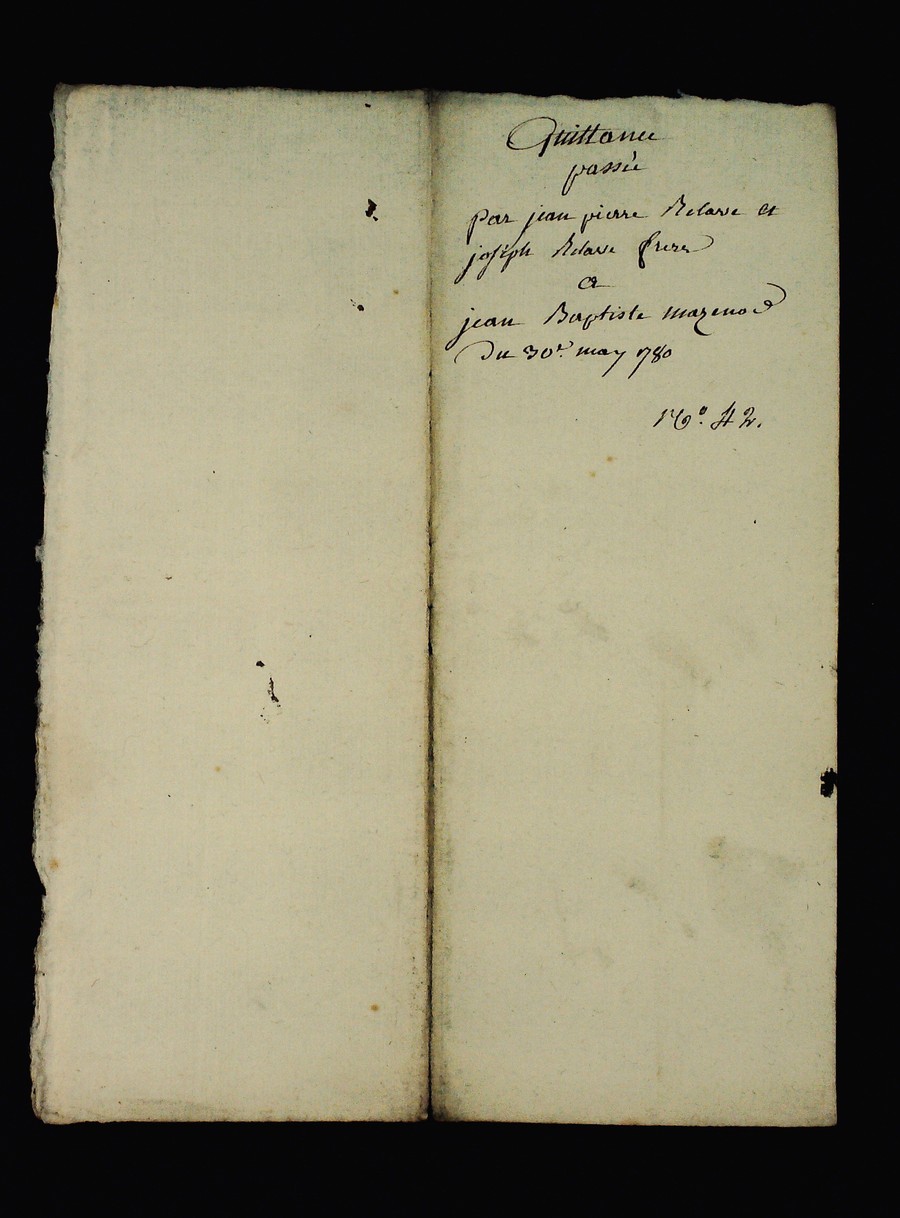 Quittance
passée
par jean pierre Relave et
joseph Relave freres
a
jean Baptiste mazenod
Du 30e. may 1780
No. 42.